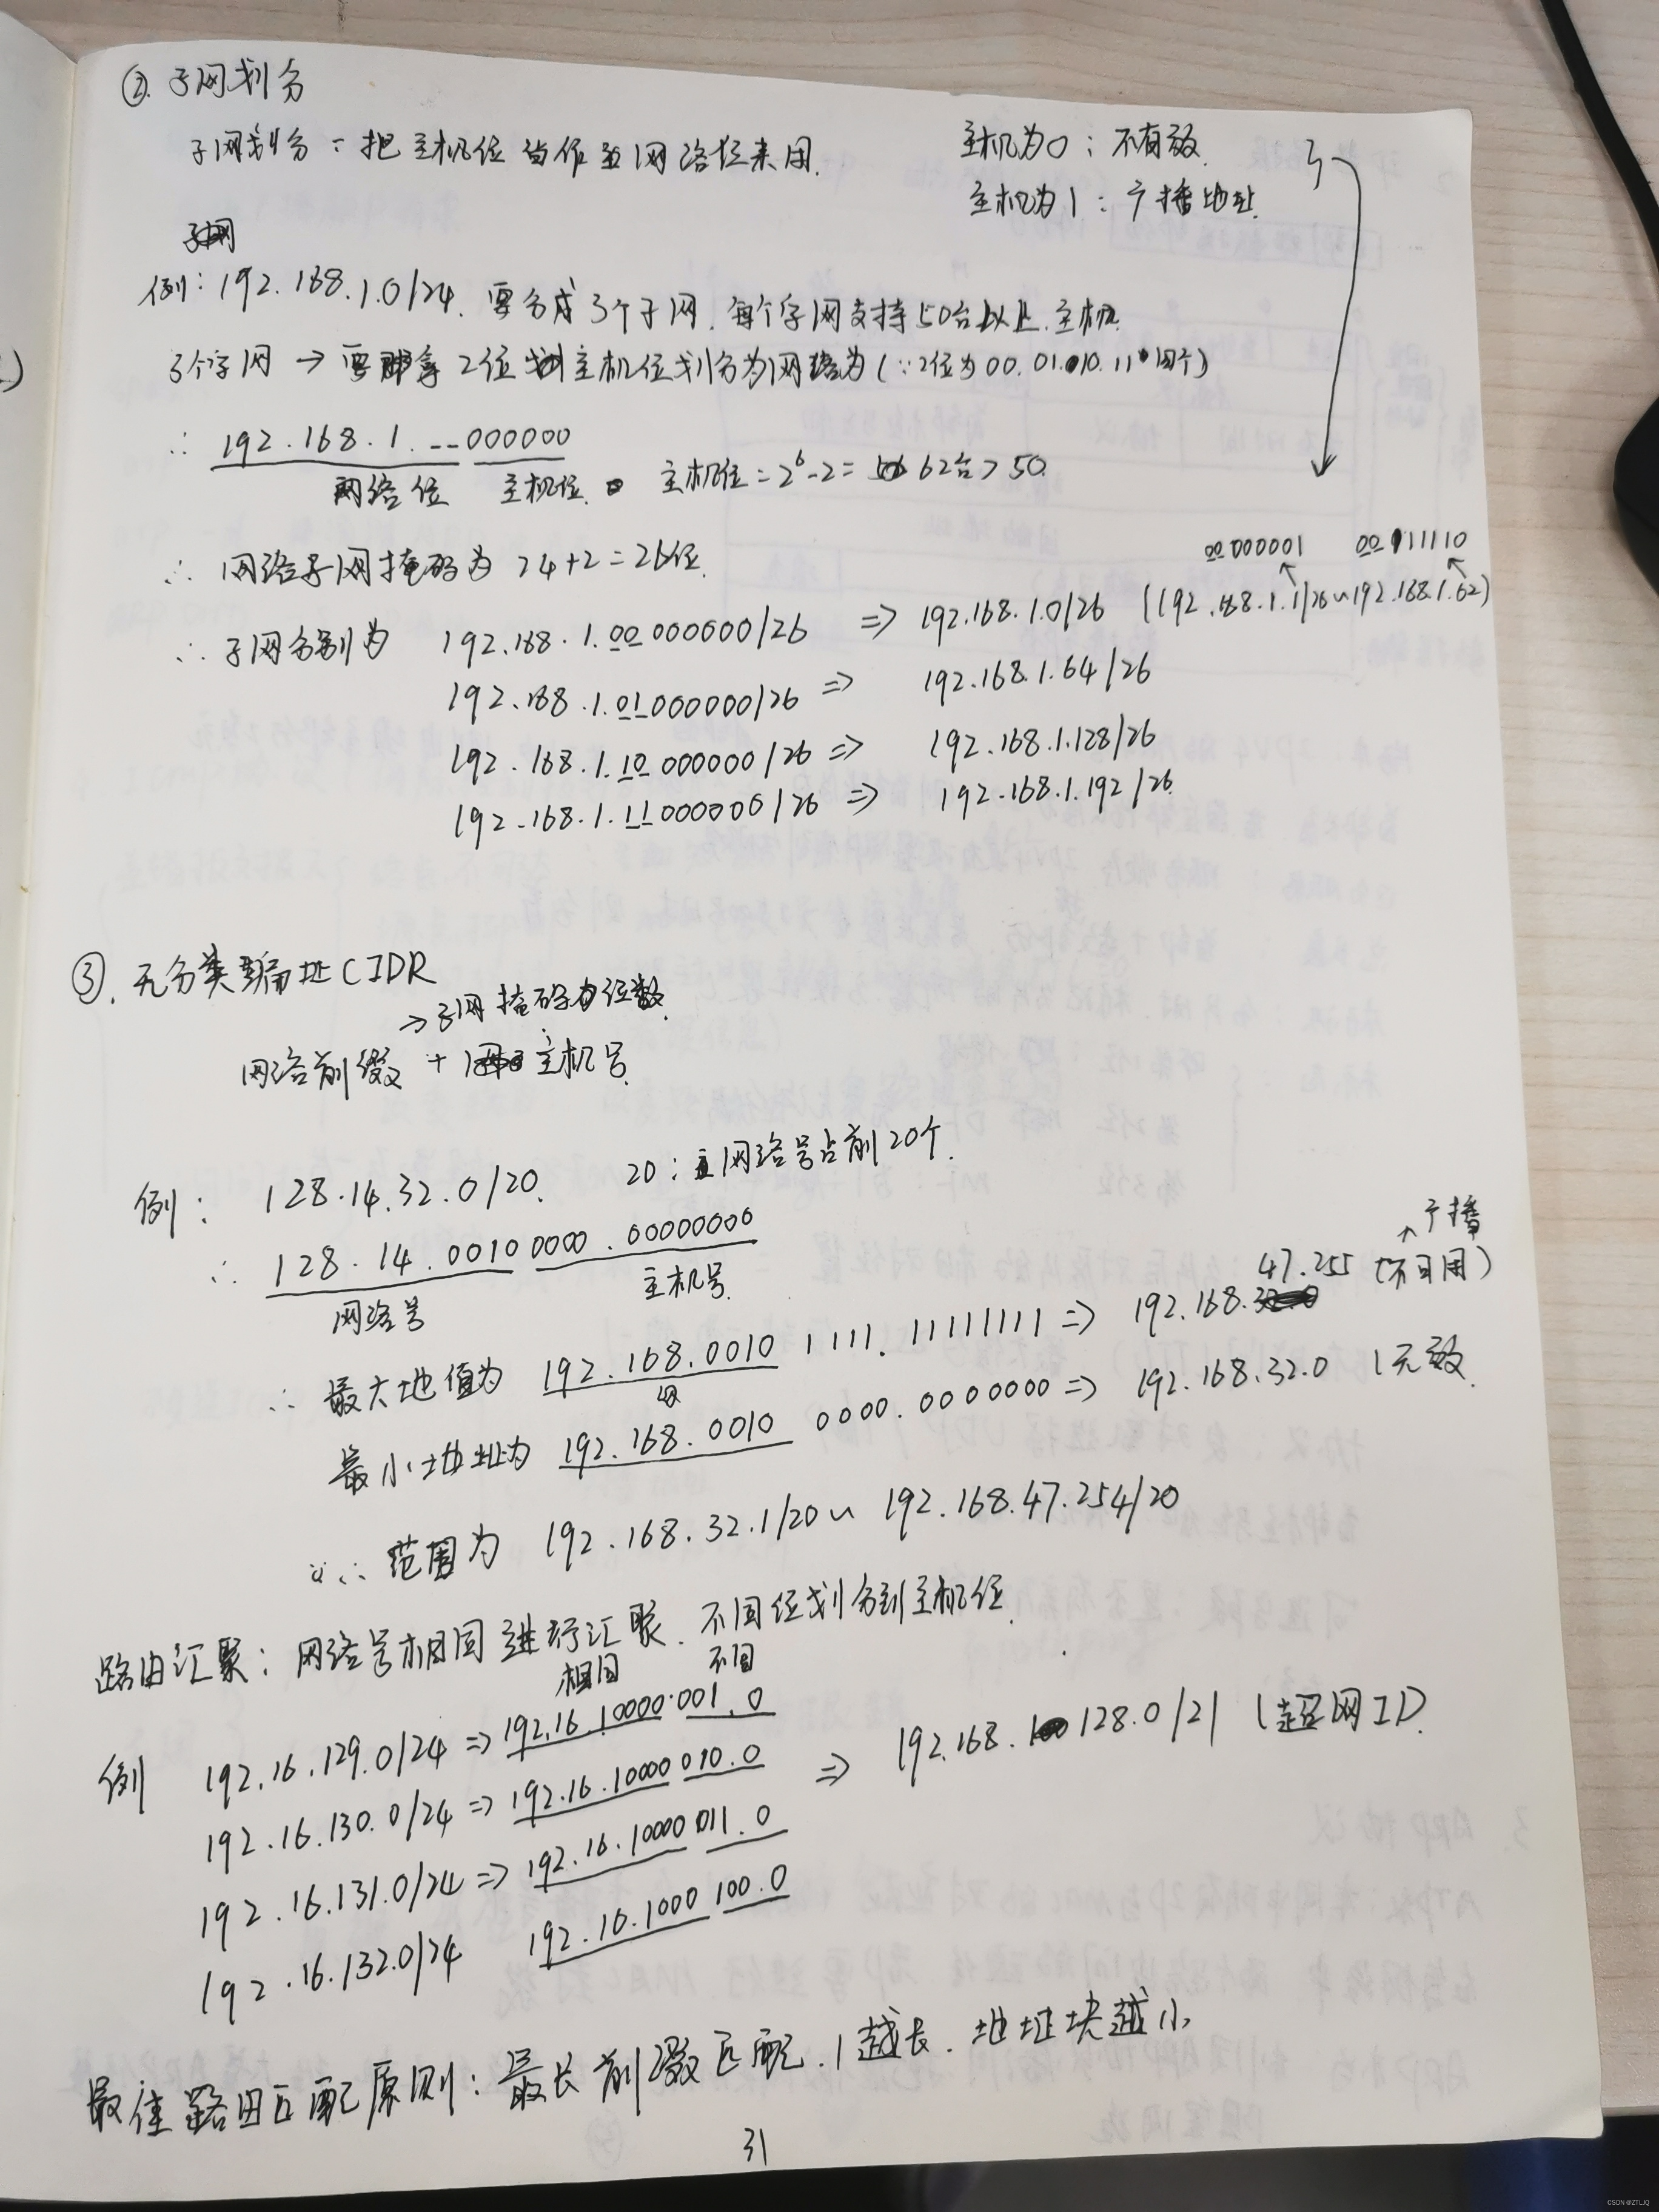 ②. 子网划分
子网划分：把主机位当作网络位来用.
主机为0：不有效.
主机为1：广播地址.
子网
例：192.168.1.0/24. 要分成3个子网. 每个字网支持50台以上主机
3个字网 → 要拿2位主机位划分为网络为(∵2位为00.01.10.11四个)
∴ 192.168.1.__000000
网络位 主机位. 主机位=2⁶-2= 62台>50.
∴ 网络子网掩码为 24+2=26位.
00000001 00111110
∴ 子网分别为 192.168.1.00000000/26 => 192.168.1.0/26 (192.168.1.1/26~192.168.1.62)
192.168.1.01000000/26 => 192.168.1.64/26
192.168.1.10000000/26 => 192.168.1.128/26
192.168.1.11000000/26 => 192.168.1.192/26.
③. 无分类编址CIDR
→子网掩码为位数.
网络前缀 + 主机号.
例： 128.14.32.0/20. 20：网络号占前20个.
∴ 128.14.0010 0000.00000000
网络号 主机号.
↗广播
47.255 (不可用)
∴ 最大地值为 192.168.0010 1111.11111111 => 192.168.
最小地址为 192.168.0010 0000.0000000 => 192.168.32.0 (无效.
∴ 范围为 192.168.32.1/20~192.168.47.254/20
路由汇聚：网络号相同进行汇聚. 不同位划分到主机位.
相同 不同
例 192.16.129.0/24 => 192.16.10000.001.0
192.16.130.0/24 => 192.16.10000 010.0 => 192.168.128.0/21 (超网ID.
192.16.131.0/24 => 192.16.10000 011.0
192.16.132.0/24 192.16.1000 100.0
最佳路由匹配原则：最长前缀匹配. 1越长. 地址块越小.
31
CSDN @ZTLJQ